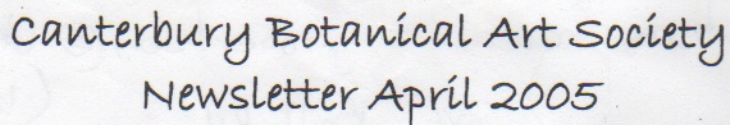 Canterbury Botanical Art Society
Newsletter April 2005